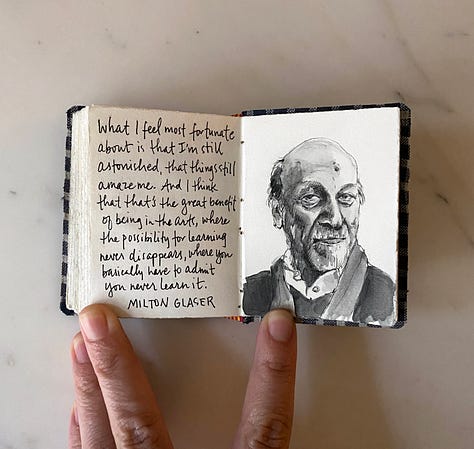 What I feel most fortunate
about is that I'm still
astonished, that things still
amaze me. And I think
that that's the great benefit
of being in the arts, where
the possibility for learning
never disappears, where you
basically have to admit
you never learn it.
MILTON GLASER